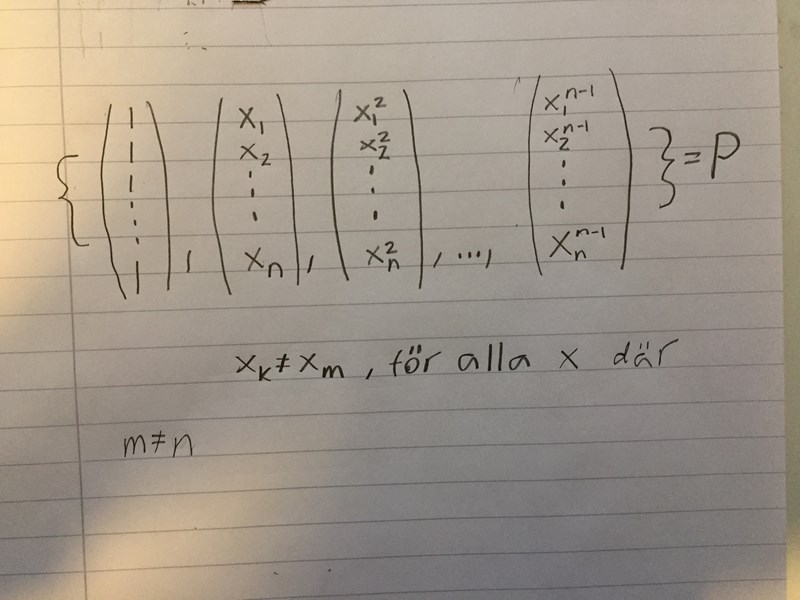 { (1 1 1 ⋮ 1), (x₁ x₂ ⋮ xₙ), (x₁² x₂² ⋮ xₙ²), ..., (x₁ⁿ⁻¹ x₂ⁿ⁻¹ ⋮ xₙⁿ⁻¹) } = P
xₖ ≠ xₘ, för alla x där
m ≠ n